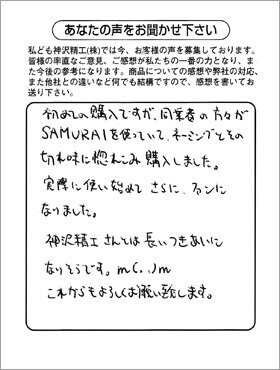 あなたの声をお聞かせ下さい
私ども神沢精工(株)では今、お客様の声を募集しております。
皆様の率直なご意見、ご感想が私たちの一番の力となり、ま
た今後の参考になります。商品についての感想や弊社の対応、
また他社との違いなど何でも結構ですので、感想を書いてお
送り下さい。
初めての購入ですが、同業者の方々が
SAMURAIを使っていて、ネーミングとその
切れ味に惚れこみ購入しました。
実際に使い始めて さらに、ファンに
なりました。
神沢精工さんとは長いつきあいに
なりそうです。m(. .)m
これからもよろしくお願い致します。